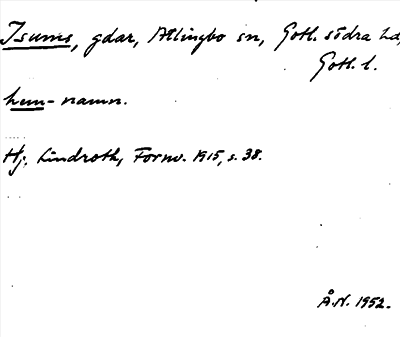 Isums, gdar, Atlingbo sn, Gotl. södra hd,
Gotl. l.
hem-namn.
Hj. Lindroth, Fornv. 1915, s. 38.
Å.N. 1952.